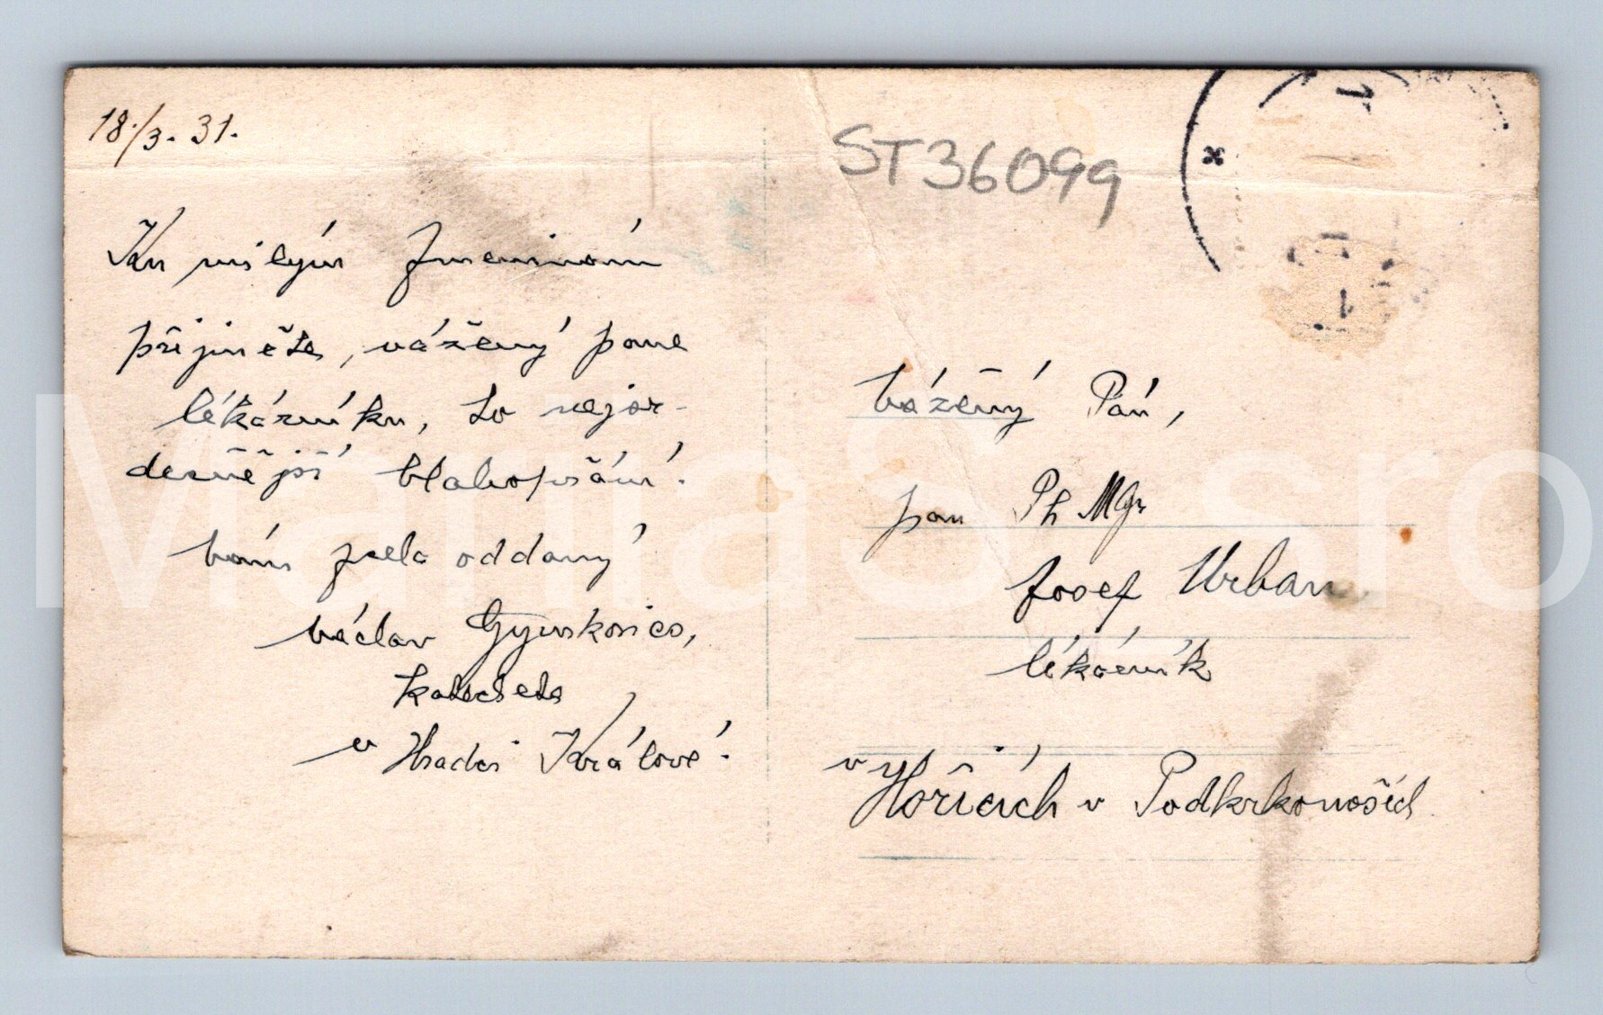 18./3. 31.
Ku milým jmeninám
přijměte, vážený pane
lékárníku, to nejsr-
dečnější blahopřání.
Vám zcela oddaný
Václav
katecheta
v Hradci Králové.
ST36099
Vážený Pán,
pan Ph Mgr
Josef Urban
lékárník
v Hořicích v Podkrkonoší